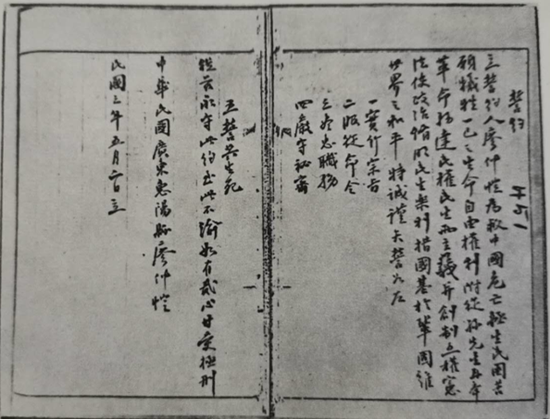 誓約
立誓約人廖仲愷為救中國危亡拯生民困苦
願犧牲一己之生命自由權利附從孫先生再舉
革命務達民權民生兩主義并創制五權憲
法使政治修明民生樂利措國基於鞏固維
世界之和平特誠謹矢誓如左
一實行宗旨
二服從命令
三盡忠職務
四嚴守秘密
五誓共生死
從茲永守此約至死不渝如有貳心甘受極刑
中華民國廣東惠陽縣廖仲愷
民國三年五月二日立